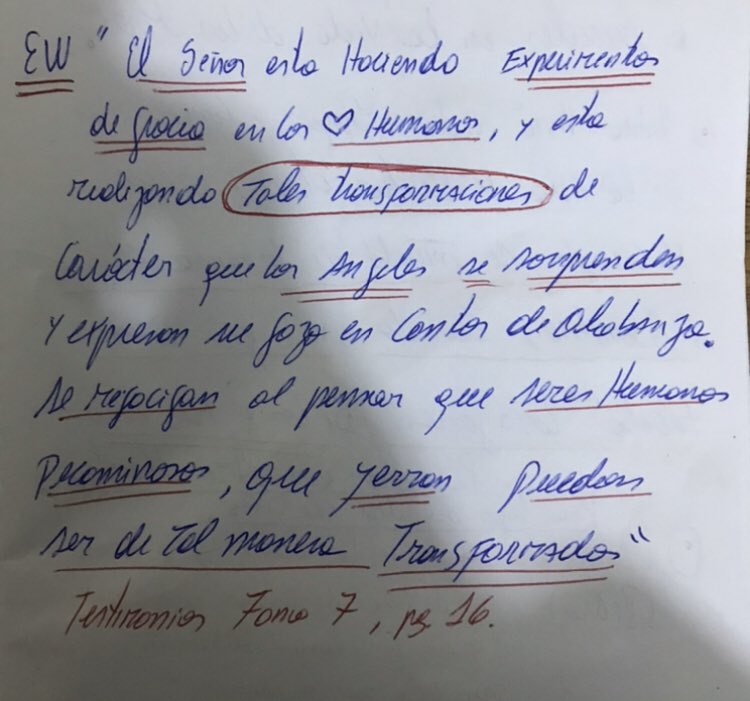 EW " El Señor esta Haciendo Experimentos
de gracia en los ♡ Humanos, y esta
realizando Tales transformaciones de
Carácter que los Angeles se sorprenden
y expresan su gozo en Cantos de Alabanza.
Se regocigan al pensar que seres Humanos
Pecaminosos, que yerran Puedan
ser de tal manera Transformados"
Testimonios Tomo 7, pg 16.